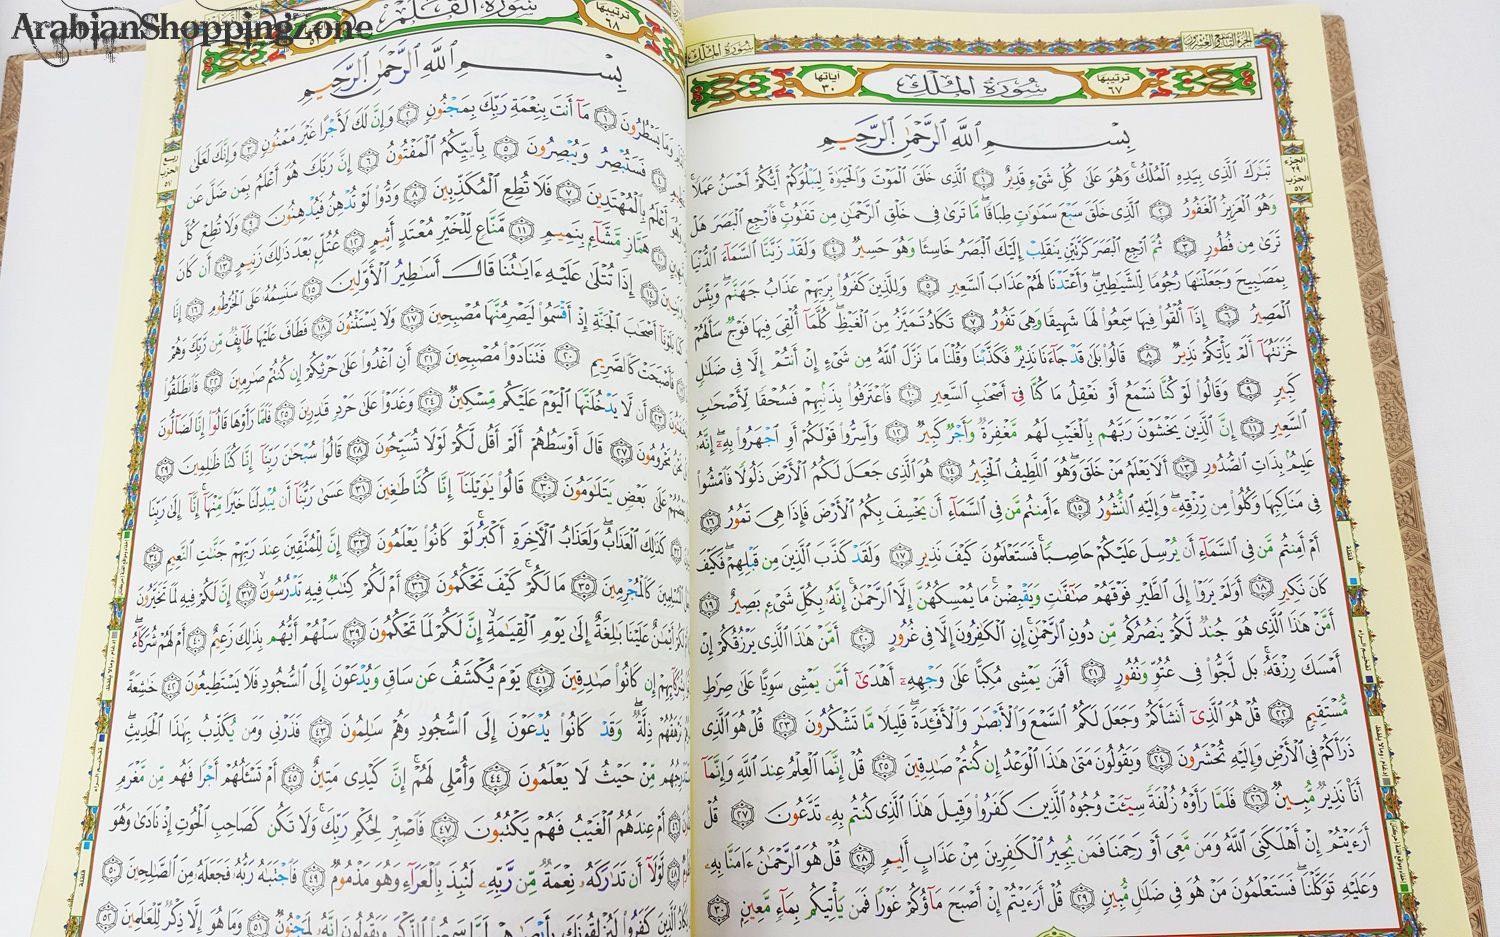 ArabianShoppingZone
الجزء التاسع والعشرون
سورة الملك
ترتيبها
٦٧
سُورَةُ الْمُلْكِ
آياتها
٣٠
بِسْمِ ٱللَّهِ ٱلرَّحْمَٰنِ ٱلرَّحِيمِ
تَبَٰرَكَ ٱلَّذِى بِيَدِهِ ٱلْمُلْكُ وَهُوَ عَلَىٰ كُلِّ شَىْءٍ قَدِيرٌ ١ ٱلَّذِى خَلَقَ ٱلْمَوْتَ وَٱلْحَيَوٰةَ لِيَبْلُوَكُمْ أَيُّكُمْ أَحْسَنُ عَمَلًا
وَهُوَ ٱلْعَزِيزُ ٱلْغَفُورُ ٢ ٱلَّذِى خَلَقَ سَبْعَ سَمَٰوَٰتٍ طِبَاقًا مَّا تَرَىٰ فِى خَلْقِ ٱلرَّحْمَٰنِ مِن تَفَٰوُتٍ فَٱرْجِعِ ٱلْبَصَرَ هَلْ
تَرَىٰ مِن فُطُورٍ ٣ ثُمَّ ٱرْجِعِ ٱلْبَصَرَ كَرَّتَيْنِ يَنقَلِبْ إِلَيْكَ ٱلْبَصَرُ خَاسِئًا وَهُوَ حَسِيرٌ ٤ وَلَقَدْ زَيَّنَّا ٱلسَّمَآءَ ٱلدُّنْيَا
بِمَصَٰبِيحَ وَجَعَلْنَٰهَا رُجُومًا لِّلشَّيَٰطِينِ وَأَعْتَدْنَا لَهُمْ عَذَابَ ٱلسَّعِيرِ ٥ وَلِلَّذِينَ كَفَرُوا۟ بِرَبِّهِمْ عَذَابُ جَهَنَّمَ وَبِئْسَ
ٱلْمَصِيرُ ٦ إِذَآ أُلْقُوا۟ فِيهَا سَمِعُوا۟ لَهَا شَهِيقًا وَهِىَ تَفُورُ ٧ تَكَادُ تَمَيَّزُ مِنَ ٱلْغَيْظِ كُلَّمَآ أُلْقِىَ فِيهَا فَوْجٌ سَأَلَهُمْ
خَزَنَتُهَآ أَلَمْ يَأْتِكُمْ نَذِيرٌ ٨ قَالُوا۟ بَلَىٰ قَدْ جَآءَنَا نَذِيرٌ فَكَذَّبْنَا وَقُلْنَا مَا نَزَّلَ ٱللَّهُ مِن شَىْءٍ إِنْ أَنتُمْ إِلَّا فِى ضَلَٰلٍ
كَبِيرٍ ٩ وَقَالُوا۟ لَوْ كُنَّا نَسْمَعُ أَوْ نَعْقِلُ مَا كُنَّا فِىٓ أَصْحَٰبِ ٱلسَّعِيرِ ١٠ فَٱعْتَرَفُوا۟ بِذَنۢبِهِمْ فَسُحْقًا لِّأَصْحَٰبِ
ٱلسَّعِيرِ ١١ إِنَّ ٱلَّذِينَ يَخْشَوْنَ رَبَّهُم بِٱلْغَيْبِ لَهُم مَّغْفِرَةٌ وَأَجْرٌ كَبِيرٌ ١٢ وَأَسِرُّوا۟ قَوْلَكُمْ أَوِ ٱجْهَرُوا۟ بِهِۦٓ إِنَّهُۥ
عَلِيمٌۢ بِذَاتِ ٱلصُّدُورِ ١٣ أَلَا يَعْلَمُ مَنْ خَلَقَ وَهُوَ ٱللَّطِيفُ ٱلْخَبِيرُ ١٤ هُوَ ٱلَّذِى جَعَلَ لَكُمُ ٱلْأَرْضَ ذَلُولًا فَٱمْشُوا۟
فِى مَنَاكِبِهَا وَكُلُوا۟ مِن رِّزْقِهِۦ وَإِلَيْهِ ٱلنُّشُورُ ١٥ ءَأَمِنتُم مَّن فِى ٱلسَّمَآءِ أَن يَخْسِفَ بِكُمُ ٱلْأَرْضَ فَإِذَا هِىَ تَمُورُ ١٦
أَمْ أَمِنتُم مَّن فِى ٱلسَّمَآءِ أَن يُرْسِلَ عَلَيْكُمْ حَاصِبًا فَسَتَعْلَمُونَ كَيْفَ نَذِيرِ ١٧ وَلَقَدْ كَذَّبَ ٱلَّذِينَ مِن قَبْلِهِمْ فَكَيْفَ
كَانَ نَكِيرِ ١٨ أَوَلَمْ يَرَوْا۟ إِلَى ٱلطَّيْرِ فَوْقَهُمْ صَٰٓفَّٰتٍ وَيَقْبِضْنَ مَا يُمْسِكُهُنَّ إِلَّا ٱلرَّحْمَٰنُ إِنَّهُۥ بِكُلِّ شَىْءٍۭ بَصِيرٌ ١٩
أَمَّنْ هَٰذَا ٱلَّذِى هُوَ جُندٌ لَّكُمْ يَنصُرُكُم مِّن دُونِ ٱلرَّحْمَٰنِ إِنِ ٱلْكَٰفِرُونَ إِلَّا فِى غُرُورٍ ٢٠ أَمَّنْ هَٰذَا ٱلَّذِى يَرْزُقُكُمْ إِنْ
أَمْسَكَ رِزْقَهُۥ بَل لَّجُّوا۟ فِى عُتُوٍّ وَنُفُورٍ ٢١ أَفَمَن يَمْشِى مُكِبًّا عَلَىٰ وَجْهِهِۦٓ أَهْدَىٰٓ أَمَّن يَمْشِى سَوِيًّا عَلَىٰ صِرَٰطٍ
مُّسْتَقِيمٍ ٢٢ قُلْ هُوَ ٱلَّذِىٓ أَنشَأَكُمْ وَجَعَلَ لَكُمُ ٱلسَّمْعَ وَٱلْأَبْصَٰرَ وَٱلْأَفْـِٔدَةَ قَلِيلًا مَّا تَشْكُرُونَ ٢٣ قُلْ هُوَ ٱلَّذِى
ذَرَأَكُمْ فِى ٱلْأَرْضِ وَإِلَيْهِ تُحْشَرُونَ ٢٤ وَيَقُولُونَ مَتَىٰ هَٰذَا ٱلْوَعْدُ إِن كُنتُمْ صَٰدِقِينَ ٢٥ قُلْ إِنَّمَا ٱلْعِلْمُ عِندَ ٱللَّهِ وَإِنَّمَآ
أَنَا۠ نَذِيرٌ مُّبِينٌ ٢٦ فَلَمَّا رَأَوْهُ زُلْفَةً سِيٓـَٔتْ وُجُوهُ ٱلَّذِينَ كَفَرُوا۟ وَقِيلَ هَٰذَا ٱلَّذِى كُنتُم بِهِۦ تَدَّعُونَ ٢٧ قُلْ
أَرَءَيْتُمْ إِنْ أَهْلَكَنِىَ ٱللَّهُ وَمَن مَّعِىَ أَوْ رَحِمَنَا فَمَن يُجِيرُ ٱلْكَٰفِرِينَ مِنْ عَذَابٍ أَلِيمٍ ٢٨ قُلْ هُوَ ٱلرَّحْمَٰنُ ءَامَنَّا بِهِۦ
وَعَلَيْهِ تَوَكَّلْنَا فَسَتَعْلَمُونَ مَنْ هُوَ فِى ضَلَٰلٍ مُّبِينٍ ٢٩ قُلْ أَرَءَيْتُمْ إِنْ أَصْبَحَ مَآؤُكُمْ غَوْرًا فَمَن يَأْتِيكُم بِمَآءٍ مَّعِينٍۭ ٣٠
الجزء
٢٩
الحزب
٥٧
ترتيبها
٦٨
سُورَةُ الْقَلَمِ
بِسْمِ ٱللَّهِ ٱلرَّحْمَٰنِ ٱلرَّحِيمِ
وَمَا يَسْطُرُونَ ١ مَآ أَنتَ بِنِعْمَةِ رَبِّكَ بِمَجْنُونٍ ٢ وَإِنَّ لَكَ لَأَجْرًا غَيْرَ مَمْنُونٍ ٣ وَإِنَّكَ لَعَلَىٰ
فَسَتُبْصِرُ وَيُبْصِرُونَ ٥ بِأَييِّكُمُ ٱلْمَفْتُونُ ٦ إِنَّ رَبَّكَ هُوَ أَعْلَمُ بِمَن ضَلَّ عَن
أَعْلَمُ بِٱلْمُهْتَدِينَ ٧ فَلَا تُطِعِ ٱلْمُكَذِّبِينَ ٨ وَدُّوا۟ لَوْ تُدْهِنُ فَيُدْهِنُونَ ٩ وَلَا تُطِعْ كُلَّ
١٠ هَمَّازٍ مَّشَّآءٍۭ بِنَمِيمٍ ١١ مَّنَّاعٍ لِّلْخَيْرِ مُعْتَدٍ أَثِيمٍ ١٢ عُتُلٍّۭ بَعْدَ ذَٰلِكَ زَنِيمٍ ١٣ أَن كَانَ
١٤ إِذَا تُتْلَىٰ عَلَيْهِ ءَايَٰتُنَا قَالَ أَسَٰطِيرُ ٱلْأَوَّلِينَ ١٥ سَنَسِمُهُۥ عَلَى ٱلْخُرْطُومِ ١٦ إِنَّا
بَلَوْنَآ أَصْحَٰبَ ٱلْجَنَّةِ إِذْ أَقْسَمُوا۟ لَيَصْرِمُنَّهَا مُصْبِحِينَ ١٧ وَلَا يَسْتَثْنُونَ ١٨ فَطَافَ عَلَيْهَا طَآئِفٌ مِّن رَّبِّكَ وَهُمْ
فَأَصْبَحَتْ كَٱلصَّرِيمِ ٢٠ فَتَنَادَوْا۟ مُصْبِحِينَ ٢١ أَنِ ٱغْدُوا۟ عَلَىٰ حَرْثِكُمْ إِن كُنتُمْ صَٰرِمِينَ ٢٢ فَٱنطَلَقُوا۟
٢٣ أَن لَّا يَدْخُلَنَّهَا ٱلْيَوْمَ عَلَيْكُم مِّسْكِينٌ ٢٤ وَغَدَوْا۟ عَلَىٰ حَرْدٍ قَٰدِرِينَ ٢٥ فَلَمَّا رَأَوْهَا قَالُوٓا۟ إِنَّا لَضَآلُّونَ
مَحْرُومُونَ ٢٧ قَالَ أَوْسَطُهُمْ أَلَمْ أَقُل لَّكُمْ لَوْلَا تُسَبِّحُونَ ٢٨ قَالُوا۟ سُبْحَٰنَ رَبِّنَآ إِنَّا كُنَّا ظَٰلِمِينَ ٢٩
عَلَىٰ بَعْضٍ يَتَلَٰوَمُونَ ٣٠ قَالُوا۟ يَٰوَيْلَنَآ إِنَّا كُنَّا طَٰغِينَ ٣١ عَسَىٰ رَبُّنَآ أَن يُبْدِلَنَا خَيْرًا مِّنْهَآ إِنَّآ إِلَىٰ رَبِّنَا
كَذَٰلِكَ ٱلْعَذَابُ وَلَعَذَابُ ٱلْءَاخِرَةِ أَكْبَرُ لَوْ كَانُوا۟ يَعْلَمُونَ ٣٣ إِنَّ لِلْمُتَّقِينَ عِندَ رَبِّهِمْ جَنَّٰتِ ٱلنَّعِيمِ ٣٤
ٱلْمُسْلِمِينَ كَٱلْمُجْرِمِينَ ٣٥ مَا لَكُمْ كَيْفَ تَحْكُمُونَ ٣٦ أَمْ لَكُمْ كِتَٰبٌ فِيهِ تَدْرُسُونَ ٣٧ إِنَّ لَكُمْ فِيهِ لَمَا تَخَيَّرُونَ
أَيْمَٰنٌ عَلَيْنَا بَٰلِغَةٌ إِلَىٰ يَوْمِ ٱلْقِيَٰمَةِ إِنَّ لَكُمْ لَمَا تَحْكُمُونَ ٣٩ سَلْهُمْ أَيُّهُم بِذَٰلِكَ زَعِيمٌ ٤٠ أَمْ لَهُمْ شُرَكَآءُ
إِن كَانُوا۟ صَٰدِقِينَ ٤١ يَوْمَ يُكْشَفُ عَن سَاقٍ وَيُدْعَوْنَ إِلَى ٱلسُّجُودِ فَلَا يَسْتَطِيعُونَ ٤٢ خَٰشِعَةً
تَرْهَقُهُمْ ذِلَّةٌ وَقَدْ كَانُوا۟ يُدْعَوْنَ إِلَى ٱلسُّجُودِ وَهُمْ سَٰلِمُونَ ٤٣ فَذَرْنِى وَمَن يُكَذِّبُ بِهَٰذَا ٱلْحَدِيثِ
مِّنْ حَيْثُ لَا يَعْلَمُونَ ٤٤ وَأُمْلِى لَهُمْ إِنَّ كَيْدِى مَتِينٌ ٤٥ أَمْ تَسْـَٔلُهُمْ أَجْرًا فَهُم مِّن مَّغْرَمٍ
أَمْ عِندَهُمُ ٱلْغَيْبُ فَهُمْ يَكْتُبُونَ ٤٧ فَٱصْبِرْ لِحُكْمِ رَبِّكَ وَلَا تَكُن كَصَاحِبِ ٱلْحُوتِ إِذْ نَادَىٰ وَهُوَ
٤٨ لَّوْلَآ أَن تَدَٰرَكَهُۥ نِعْمَةٌ مِّن رَّبِّهِۦ لَنُبِذَ بِٱلْعَرَآءِ وَهُوَ مَذْمُومٌ ٤٩ فَٱجْتَبَٰهُ رَبُّهُۥ فَجَعَلَهُۥ مِنَ ٱلصَّٰلِحِينَ ٥٠
ٱلَّذِينَ كَفَرُوا۟ لَيُزْلِقُونَكَ بِأَبْصَٰرِهِمْ لَمَّا سَمِعُوا۟ ٱلذِّكْرَ وَيَقُولُونَ إِنَّهُۥ لَمَجْنُونٌ ٥١ وَمَا هُوَ إِلَّا ذِكْرٌ لِّلْعَٰلَمِينَ ٥٢
ربع
الحزب
٥٧